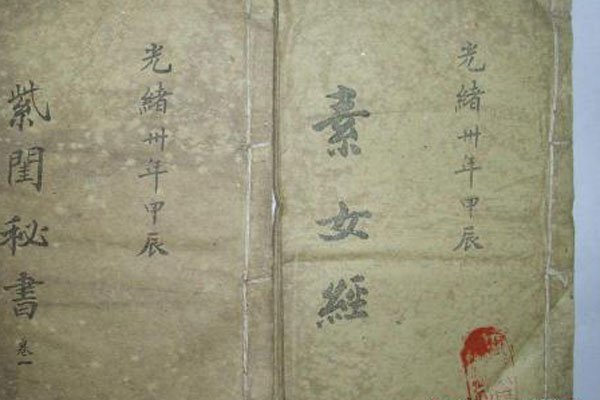 光緒卅年甲辰
素女經
光緒卅年甲辰
紫閨秘書 卷一